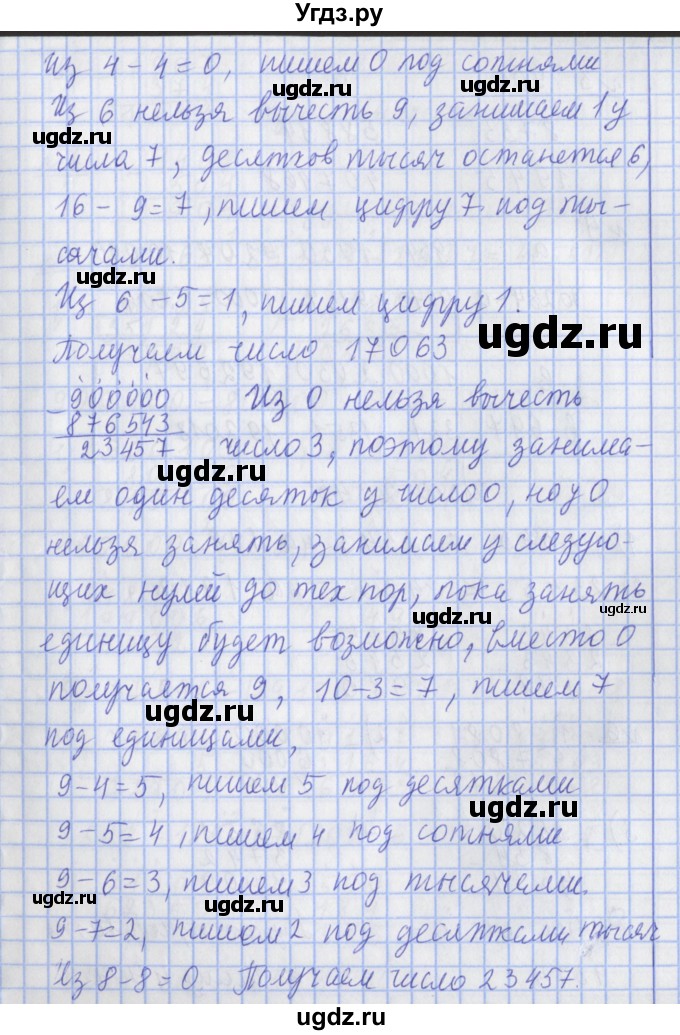 Угдз.ру
Из 4 - 4 = 0, пишем 0 под сотнями
Из 6 нельзя вычесть 9, занимаем 1 у
числа 7, десятков тысяч останется 6,
16 - 9 = 7, пишем цифру 7 под ты-
сячами.
ugdz.ru
Из 6 - 5 = 1, пишем цифру 1.
ugdz.ru
Получаем число 17063
900000 Из 0 нельзя вычесть
876543
23457 число 3, поэтому занима-
ugdz.ru
ем один десяток у число 0, но у 0
нельзя занять, занимаем у следую-
щих нулей до тех пор, пока занять
ugdz.ru
ugdz.ru
единицу будет возможно, вместо 0
получается 9, 10 - 3 = 7, пишем 7
ugdz.ru
под единицами,
9 - 4 = 5, пишем 5 под десятками
ugdz.ru
9 - 5 = 4, пишем 4 под сотнями
9 - 6 = 3, пишем 3 под тысячами.
ugdz.ru
ugdz.ru
9 - 7 = 2, пишем 2 под десятками тысяч
Из 8 - 8 = 0 Получаем число 23457.
ugdz.ru